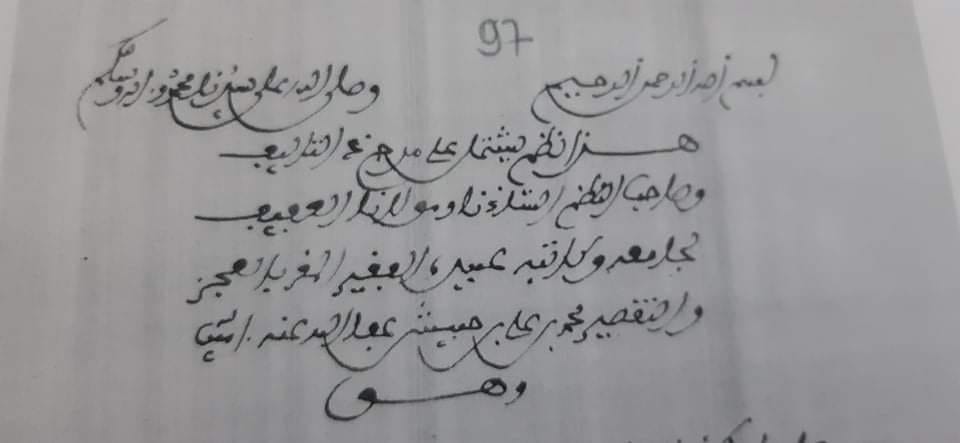 97
بسم الله الرحمن الرحيم وصلى الله على سيدنا محمد وءاله وسلم
هذا نظم يشتمل على مدح التأليف
وصاحب النظم أستاذنا ومولانا العفيف
لجامعه وكاتبه عبيده الفقير المقر بالعجز
والتقصير محمد بن علي بن حبيش عفا الله عنه ءامين
وهو